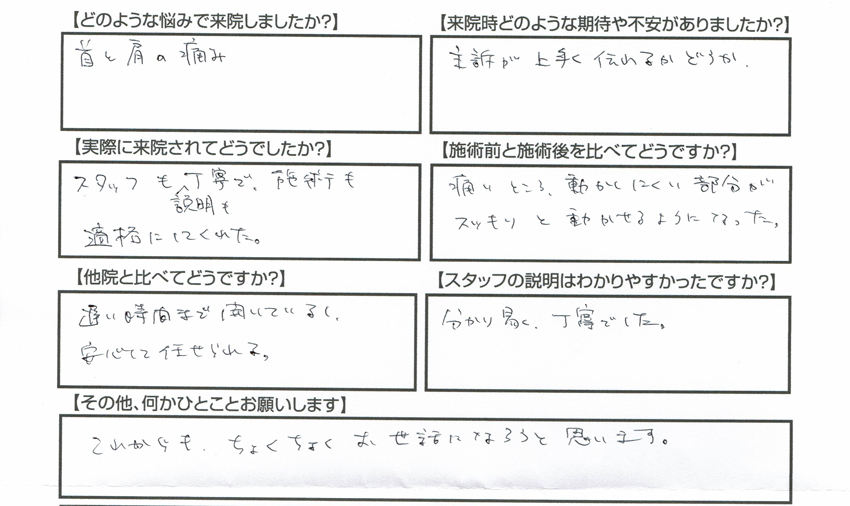 【どのような悩みで来院しましたか?】
首と肩の痛み
【来院時どのような期待や不安がありましたか?】
主訴が上手く伝れるかどうか.
【実際に来院されてどうでしたか?】
スタッフも丁寧で、施術も
説明も
適格にしてくれた。
【施術前と施術後を比べてどうですか?】
痛いところ、動かしにくい部分が
スッキリと動かせるようになった。
【他院と比べてどうですか?】
遅い時間まで開いているし、
安心して任せられる。
【スタッフの説明はわかりやすかったですか?】
分かり易く、丁寧でした。
【その他、何かひとことお願いします】
これからも、ちょくちょくお世話になろうと思います。